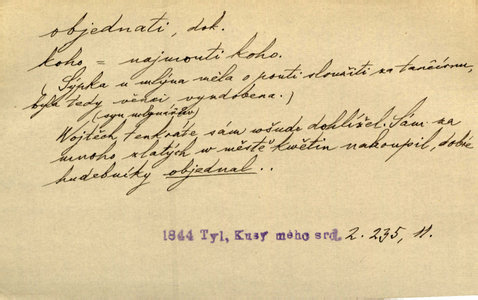 objednati, dok.
koho = najmouti koho.
(Sýpka u mlýna měla o pouti sloužiti za tančírnu,
byla tedy věnci vyzdobena.)
(syn mlynářův)
Vojtěch tenkráte sám všude dohlížel. Sám za
mnoho zlatých v městě květin nakoupil, dobré
hudebníky objednal..
1844 Tyl, Kusy mého srd. 2. 235, 11.